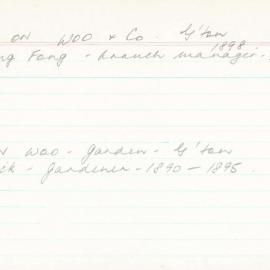 ON WOO & Co. G'ton
1898
ng Fong - branch manager -
N WOO - garden - G'ton
ick - Gardener - 1890 - 1895.